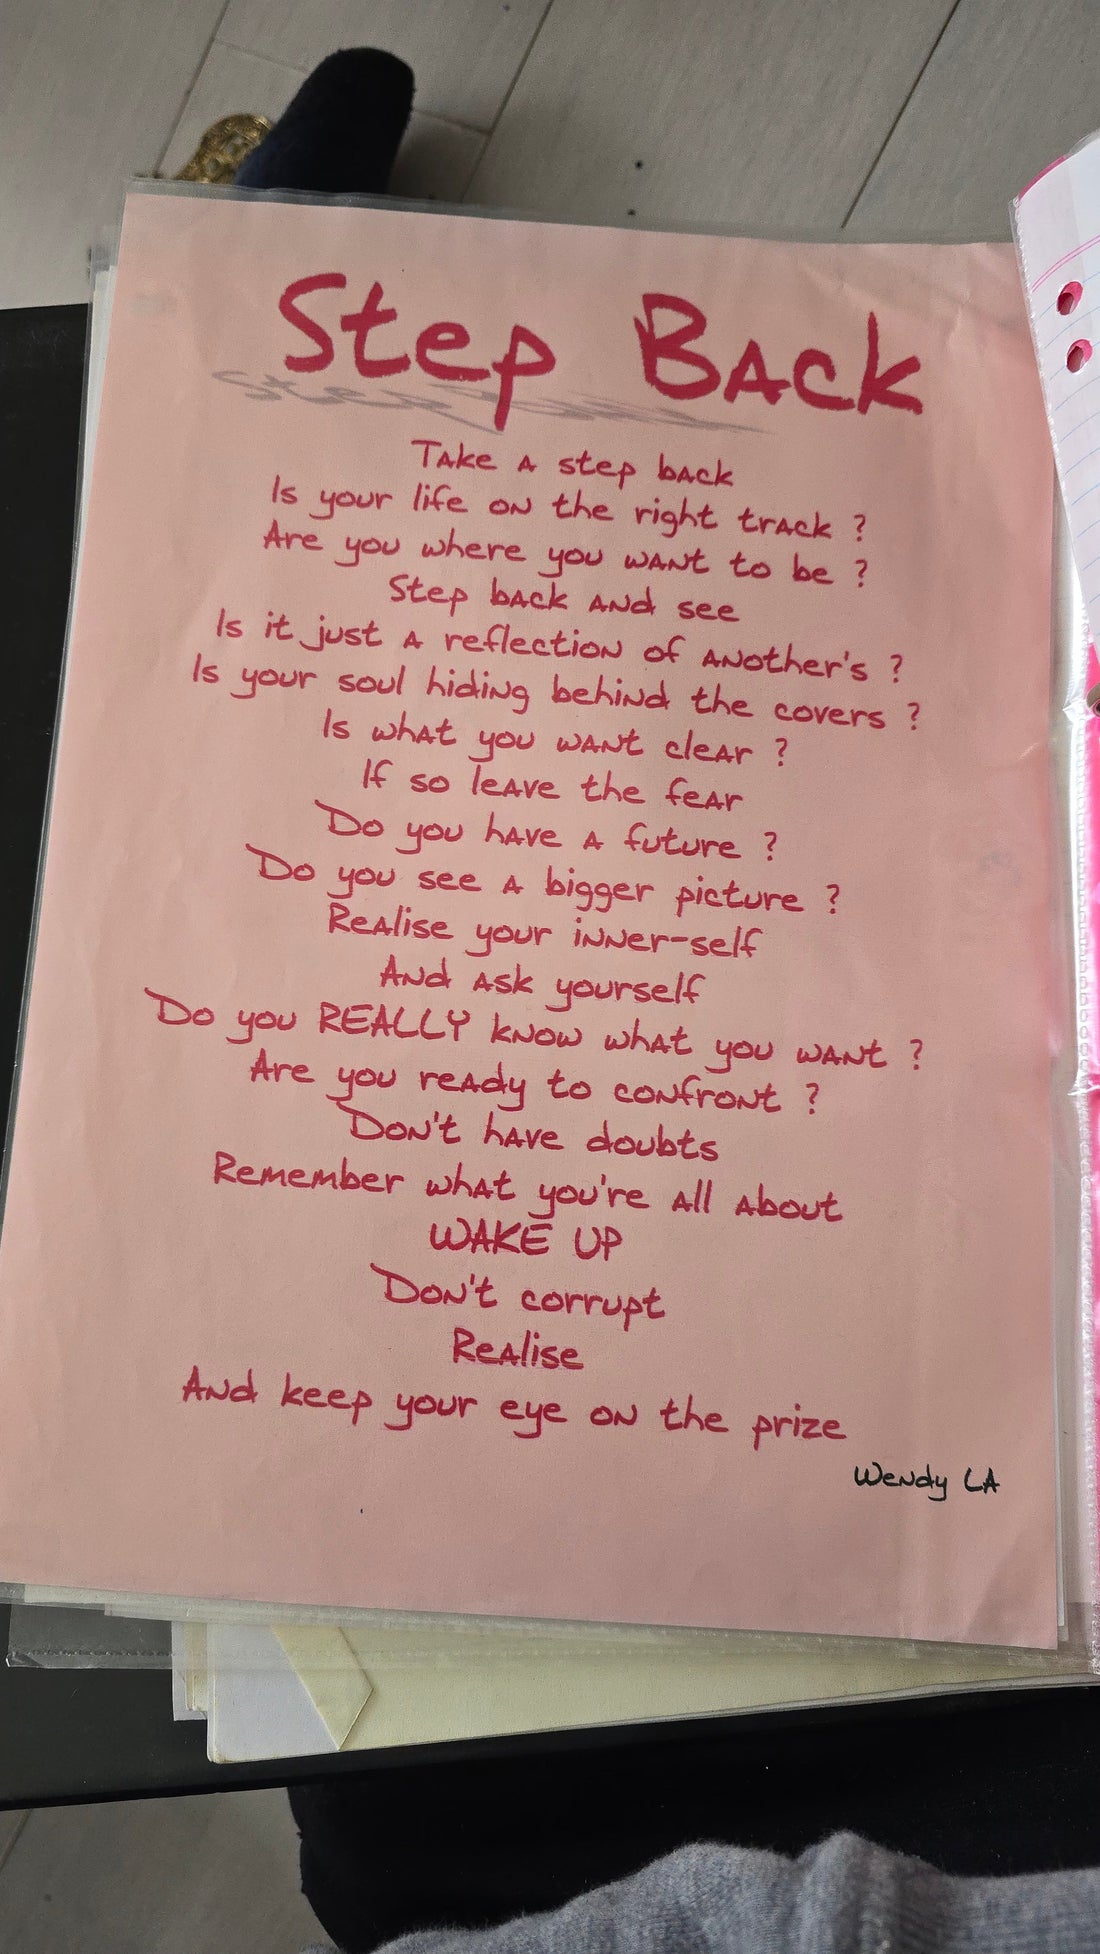 Step Back
Take a step back
Is your life on the right track ?
Are you where you want to be ?
Step back and see
Is it just a reflection of another's ?
Is your soul hiding behind the covers ?
Is what you want clear ?
If so leave the fear
Do you have a future ?
Do you see a bigger picture ?
Realise your inner-self
And ask yourself
Do you REALLY know what you want ?
Are you ready to confront ?
Don't have doubts
Remember what you're all about
WAKE UP
Don't corrupt
Realise
And keep your eye on the prize
Wendy LA